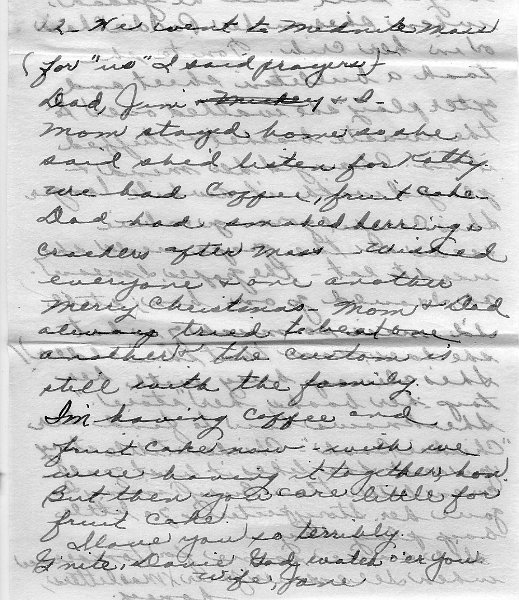 2. We went to Midnite Mass
(for "us" I said prayers)
Dad, Jimi Mickey & I -
Mom stayed home so she
said she'd listen for Kathy.
We had Coffee, fruit cake
Dad had smoked herring &
crackers after Mass. Wished
everyone & one another
Merry Christmas - Mom & Dad
always tried to beat one
another & the custom is
still with the family.
I'm having coffee and
fruit cake now - wish we
were having it together, hon.
But then you care little for
fruit cake.
I love you so terribly.
G'nite, Davie God watch o'er you
Wife, Jane